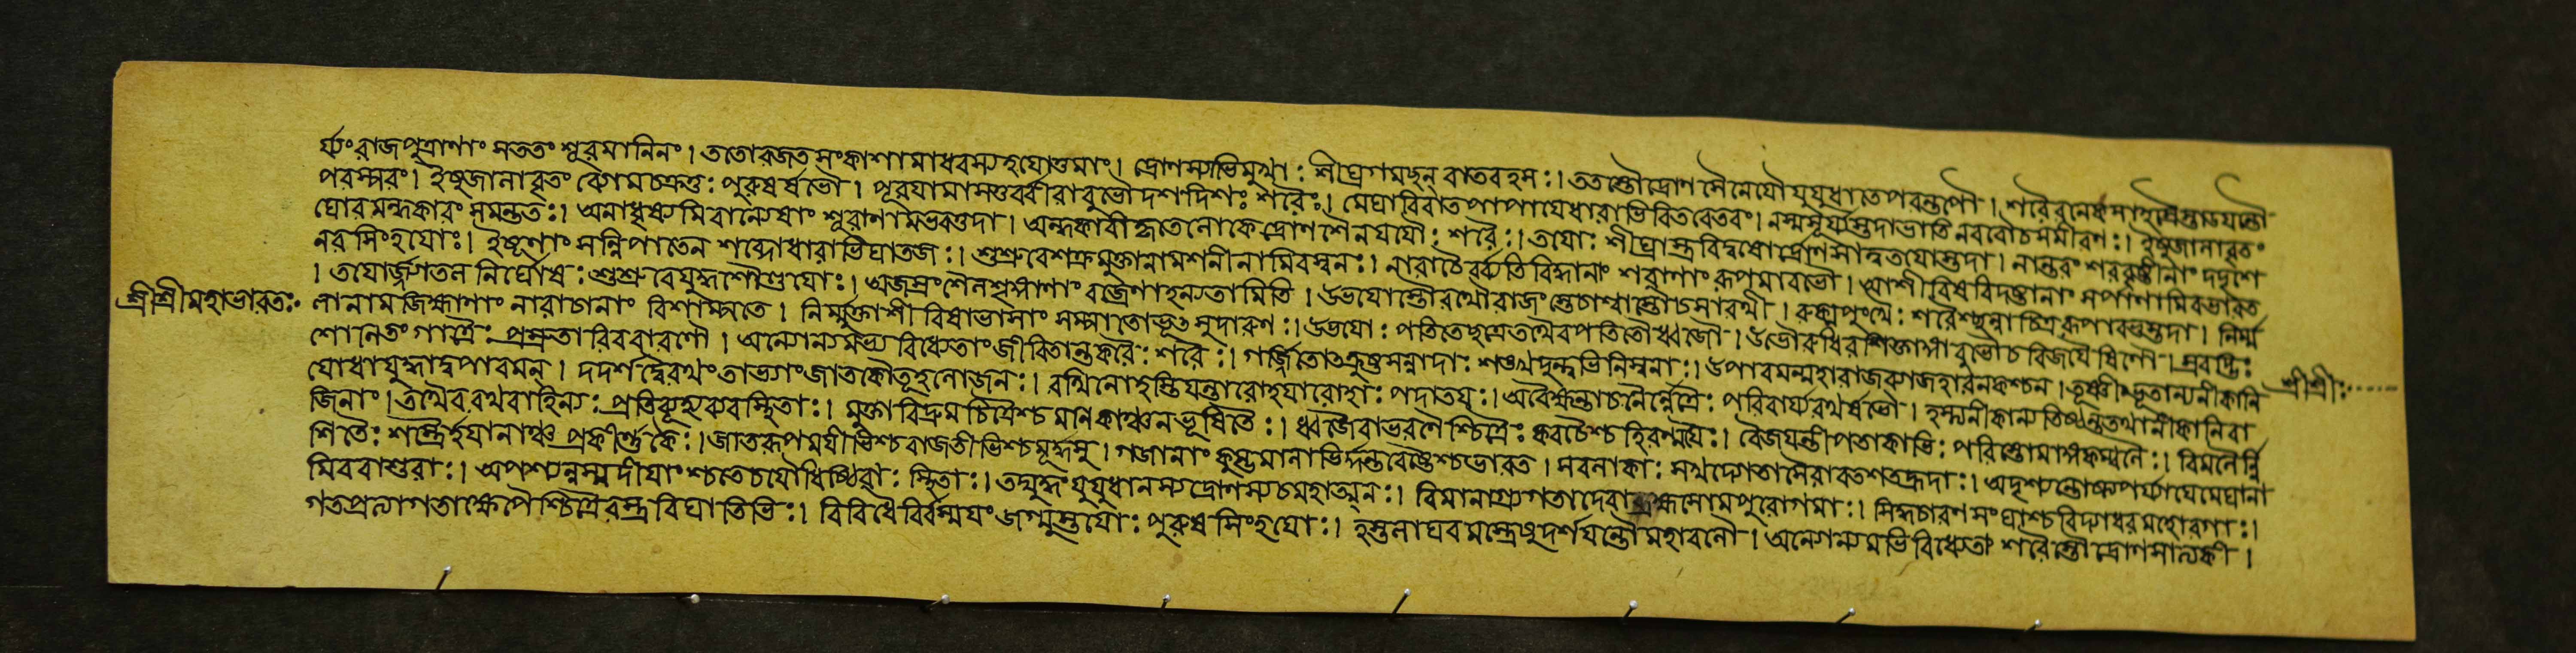 র্য্যং রাজপুত্রাণাং সততং শূরমানিনং । ততোরজতসংকাশামাধবস্যহযোত্তমাং । দ্রোণস্যাভিমুখাঃ শীঘ্রগমছন্ বাতবহসঃ । ততস্তৌদ্রোণসৈনেযৌযুযুধাতেপরন্তপৌ । শরৈরনেকসাহস্রৈস্তাডযন্তৌ
পরস্পরং । ইষুজালাবৃতং বেগমচক্রতুঃ পুরুষর্ষভৌ । পূরযামাসতুর্বীরাবুভৌদশদিশঃ শরৈঃ । মেঘাবিবাতপাপাযেধারাভির
ঘোরমন্ধকারং সমন্ততঃ । অনাধৃষ্যমিবান্যেষাং শূরাণামভবত্তদা । অন্ধকারীকৃতেলোকে দ্রোণশৈনযযৌঃ শরৈঃ । তযোঃ শীঘ্রাস্ত্রবিদুষোর্দ্রোণসাত্বতযোস্তদা । নান্তরং শরবৃষ্টীনাং দদৃশে
নরসিংহযোঃ । ইষূণাং সন্নিপাতেন শব্দোধারাভিঘাতজঃ । শুশ্রুবেশক্রমুক্তানামশনীনামিবস্বনঃ । নারাচৈ
। তযোর্জ্যাতল নির্ঘোষঃ শুশ্রুবেযুদ্ধশৌণ্ডযোঃ । অজস্রং
শ্রীশ্রীমহাভারতঃ
লানামজিহ্মাণাং নারাচানাং বিশাম্পতে । নির্ম্মুক্তাশীবিষাভাসাং সম্পাতোভূত্সুদারুণঃ । উভযোঃ পতিতেছত্রেতথৈবপতিতৌধ্বজৌ । উভৌরুধিরসিক্তাঙ্গাবুভৌচবিজযৈষিণৌ । স্রবদ্ভিঃ
শোনিতং গাত্রৈঃ প্রস্রুতারিববারণৌ । অন্যোন্যমভ্যবিধ্যেতাং জীবিতান্তকরৈঃ শরৈঃ । গর্জ্জিতোত্ক্রুষ্টসন্নাদাঃ শঙ্খদুন্দুভিনিস্বনাঃ । উপারমন্মহারাজব্যাজহারনকশ্চন । তূষ্ণীম্ভূতান্যনীকানি
শ্রীশ্রীঃ
যোধাযুদ্ধাদুপারমন্ । দদর্শদ্বৈরথং তাভ্যাং জাতকৌতূহলোজনঃ । রথিনোহস্তিযন্তারোহযারোহাঃ পদাতযঃ । অবৈক্ষন্তাচলৈর্নেত্রৈঃ পরিবার্য্যরথর্ষভৌ । হস্ত্যনীকান্যতিষ্ঠন্ততথানীকানিবা
জিনাং । তথৈবরথবাহিন্যঃ প্রতিব্যূহ্যব্যবস্থিতাঃ । মুক্তাবিদ্রুমচিত্রৈশ্চমানকাঞ্চনভূষিতৈঃ । ধ্বজৈরাভরণৈশ্চিত্রৈঃ কবচৈশ্চহিরণ্মযৈঃ । বৈজযন্তীপতাকাভিঃ পরিস্তোমাঙ্গকম্বলৈঃ । বিমলৈর্নি
শিতৈঃ শস্ত্রৈর্হযানাঞ্চ প্রকীর্ণকৈঃ । জাতরূপমযীভিশ্চরাজতীভিশ্চমূর্দ্ধসু । গজানাং কুম্ভমালাভির্দ্দন্তবেষ্টৈশ্চভারত । সবলাকাঃ সখদ্যোতাসৈরাবতশতহ্রদাঃ । অদৃশ্যন্তোষ্ণপর্য্যাযেমেঘানা
মিববাশুরাঃ । অপশ্যন্নস্মদীযাং শ্চতেচযৌধিষ্ঠিরাঃ স্থিতাঃ । তদ্যুদ্ধং যুযুধানস্যদ্রোণস্যচমহাত্মনঃ । বিমানাগ্র্যগতাদেবা সোমপুরোগমাঃ । সিদ্ধচারণসংঘাশ্চবিদ্যাধরমহোরগাঃ ।
গতপ্রত্যাগতাক্ষেপৈশ্চিত্রৈরস্ত্রবিঘাতিভিঃ । বিবিধৈর্বিস্মযং জগ্মুস্তযোঃ পুরুষসিংহযোঃ । হস্তলাঘবমস্ত্রেষুদর্শযন্তৌমহাবলৌ । অন্যোন্যমভিবিধ্যেতাং শরৈস্তৌদ্রোণসাত্যকী ।